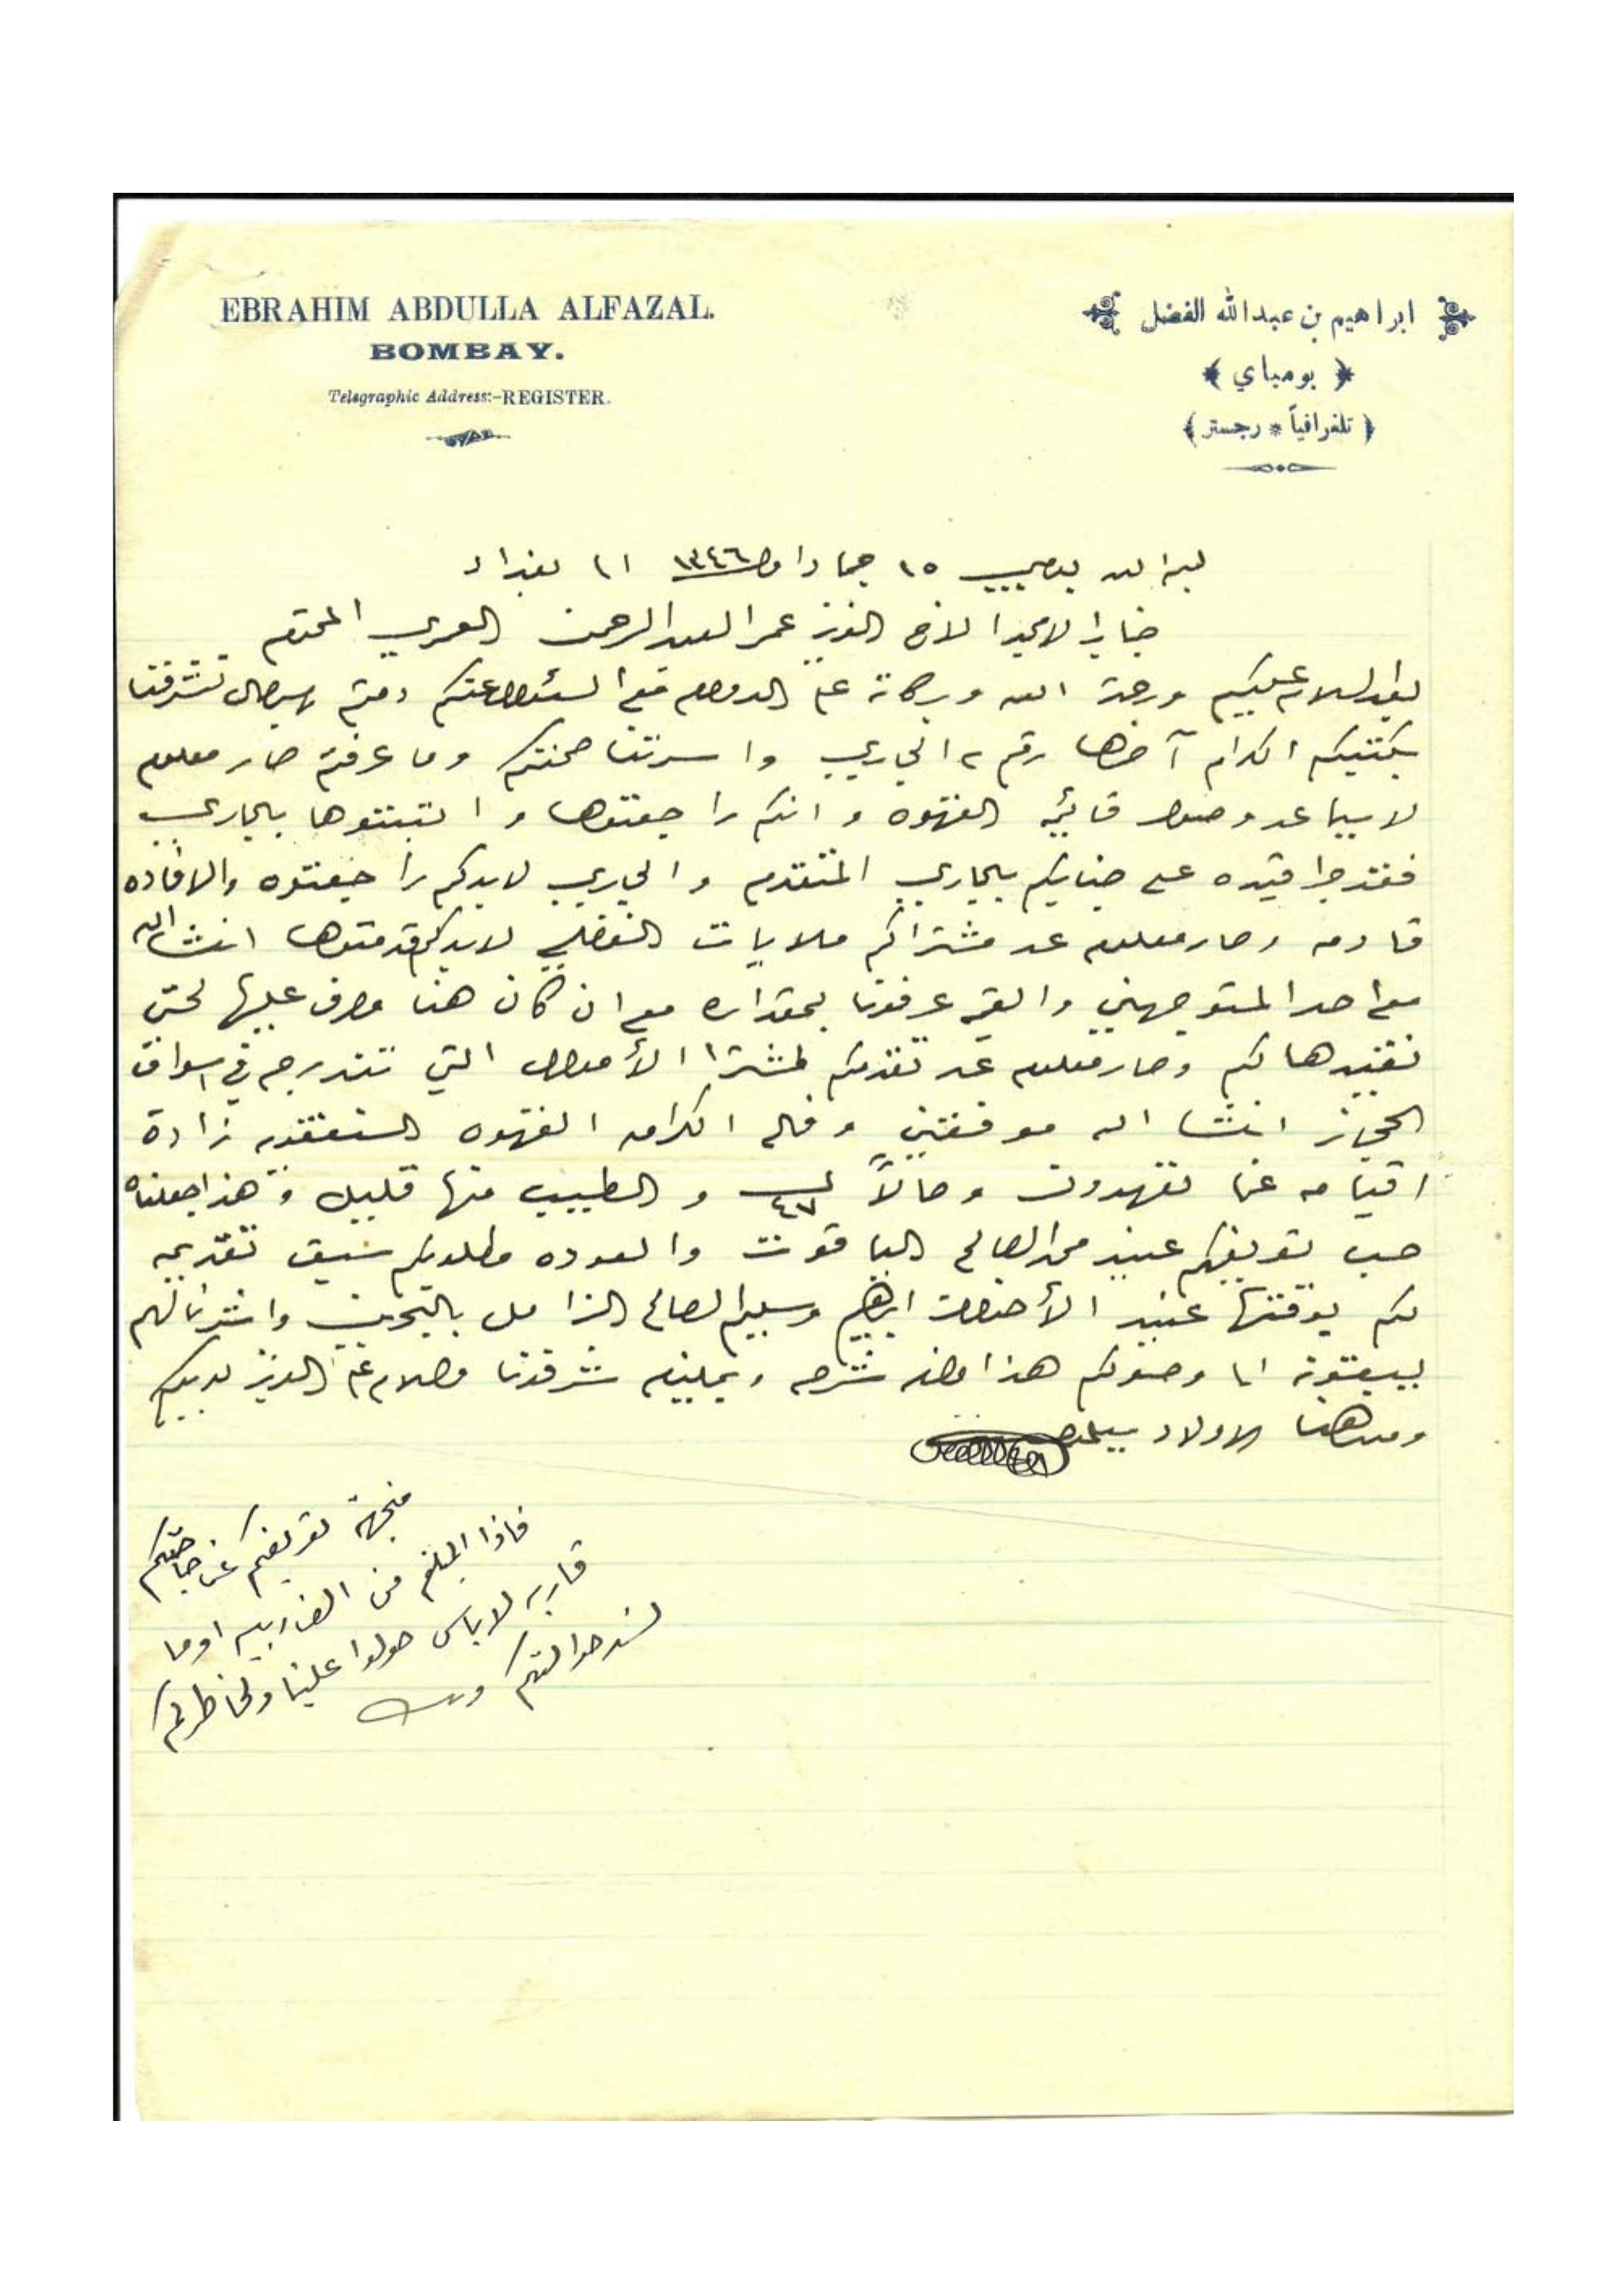 EBRAHIM ABDULLA ALFAZAL.
BOMBAY.
Telegraphic Address:-REGISTER.
ابراهيم بن عبدالله الفضل
بومباي
(تلغرافياً * رجستر)
١٥ جماد اول ١٣٤٦ الى بغداد
جناب الامجد الاخ العزيز عمر العبدالرحمن العمري المحترم
بعد السلام عليكم ورحمة الله وبركاته على الدوام مع السئوال عنكم دمتم بسرور تشرفنا
بكتبكم الكرام آخرها رقم ٢ الجاري واسرتنا صحتكم وما عرفتم صار معلوم
لاسيما عن وصول قائمة القهوه وانكم راجعتوها و اثبتتوها بالجاري
فقد جرا قيده على جنابكم بالجاري المتقدم والجاري لابدكم راجعتوه والافاده
قادمه وصار معلوم عن مشتراكم ملابات الفضلي لابدكم قدمتوها انشاالله
مع احد المتوجهين والقيمه عرفونا بمقداره مع ان كان هنا مصرف عليها لحتى
نقيدها لكم وصار معلوم عن تقدمكم لمشترا الأموال التي تندرج في اسواق
الحجاز انشا الله موفقين وفال الكرامه القهوه
اقيامه عما تعهدون وحالاً ٤٧ والطيب منها قليل وهذا جعلناه
حسب تعريفكم عنيد محمد الصالح الياقوت والعوده مطلوبكم سبق تقديمه
لكم بوقتها عنيد الأخوان ابراهيم وسليم الصالح الزامل بالبحرين واشرنا لهم
يبيعونه اما وصولكم هذا ما لزم شرحه ويمليه شرفونا وسلام على العزيز لديكم
ومن هنا الاولاد يسلمون
منجهة تعريفكم عن حاجتكم
فاذا المبلغ من الف ربيه او ما
قاربه لاباس حولوا علينا ولخاطركم
نسدد حوالتكم ودمتم